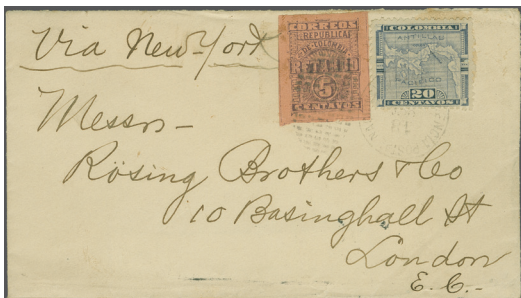 Via New-York
CORREOS
REPUBLICA
DE COLOMBIA
RETARDO
5
CENTAVOS
COLOMBIA
ANTILLAS
20
CENTAVOS
Messrs-
Rösing Brothers & Co
10 Basinghall St
London
E. C.-